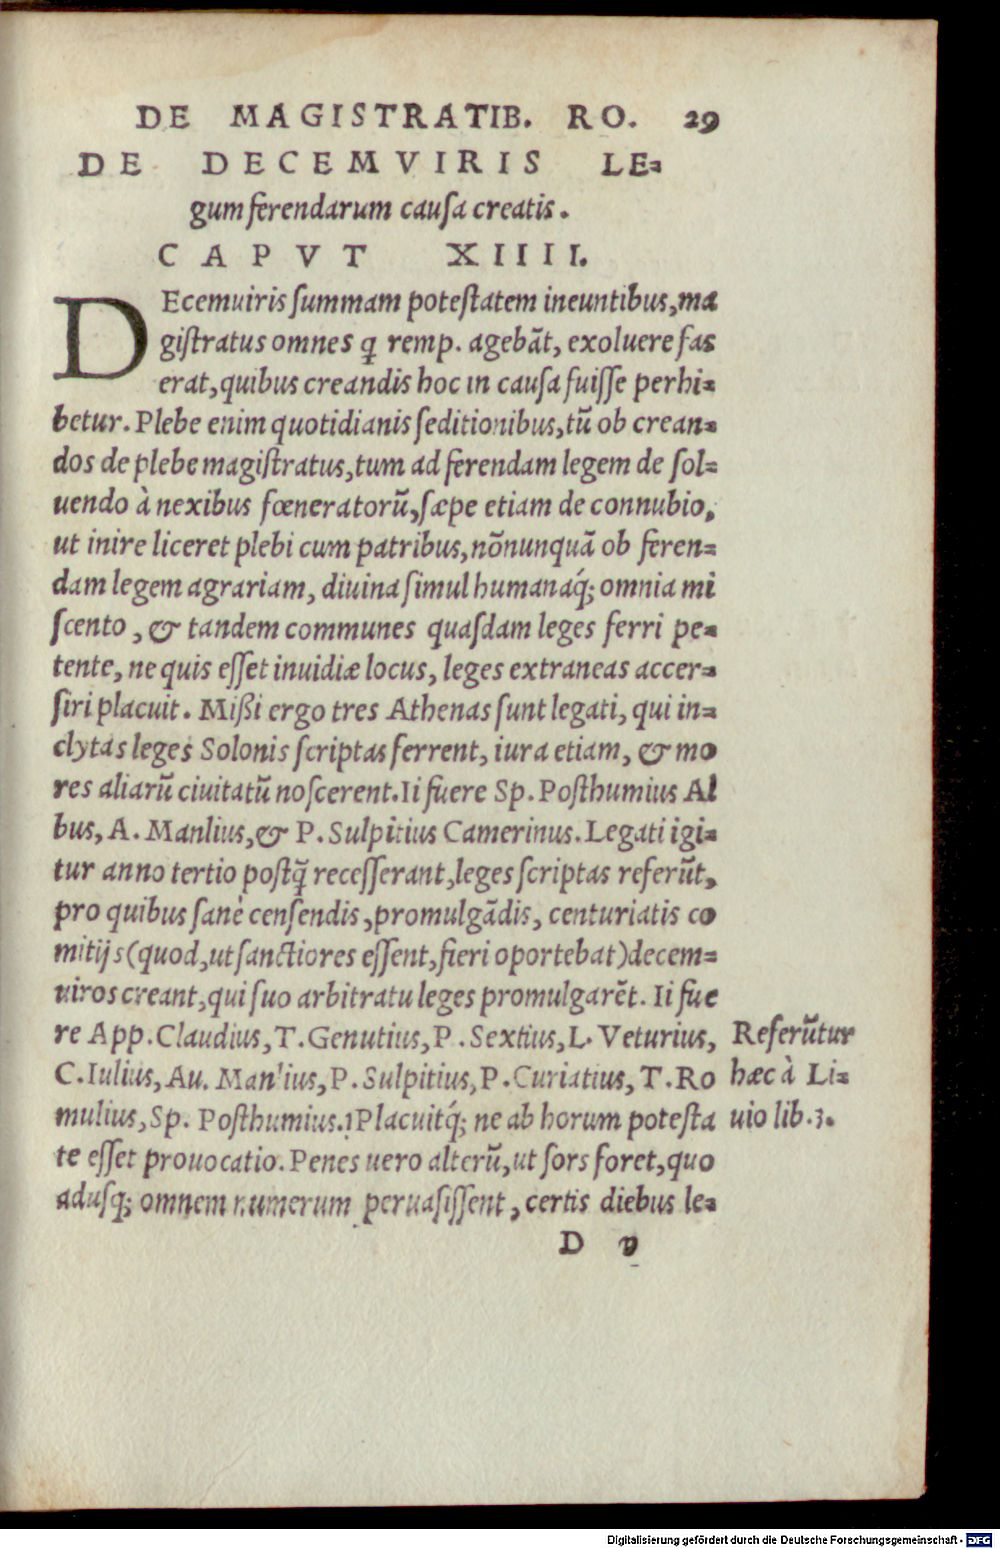 DE MAGISTRATIB. RO. 29
DE DECEMVIRIS LE-
gum ferendarum causa creatis.
CAPVT XIIII.
DEcemuiris summam potestatem ineuntibus, ma
gistratus omnes q̃ remp. agebãt, exoluere fas
erat, quibus creandis hoc in causa fuisse perhi-
betur. Plebe enim quotidianis seditionibus, tũ ob crean-
dos de plebe magistratus, tum ad ferendam legem de sol-
uendo à nexibus fœneratorũ, sæpe etiam de connubio,
ut inire liceret plebi cum patribus, nõnunquã ob feren-
dam legem agrariam, diuina simul humanaq́; omnia mi
scento, & tandem communes quasdam leges ferri pe-
tente, ne quis esset inuidiæ locus, leges extraneas accer-
siri placuit. Mißi ergo tres Athenas sunt legati, qui in-
clytas leges Solonis scriptas ferrent, iura etiam, & mo
res aliarũ ciuitatũ noscerent. Ii fuere Sp. Posthumius Al
bus, A. Manlius, & P. Sulpitius Camerinus. Legati igi-
tur anno tertio postq̃ recesserant, leges scriptas referũt,
pro quibus sanè censendis, promulgãdis, centuriatis co
mitijs (quod, ut sanctiores essent, fieri oportebat) decem-
uiros creant, qui suo arbitratu leges promulgarẽt. Ii fue
re App. Claudius, T. Genutius, P. Sextius, L. Veturius,
C. Iulius, Au. Manlius, P. Sulpitius, P. Curiatius, T. Ro
mulius, Sp. Posthumius. Placuitq́; ne ab horum potesta
te esset prouocatio. Penes uero alterũ, ut sors foret, quo
adusq; omnem numerum peruasissent, certis diebus le-
Referũtur
hæc à Li-
uio lib. 3.
D v
Digitalisierung gefördert durch die Deutsche Forschungsgemeinschaft - DFG